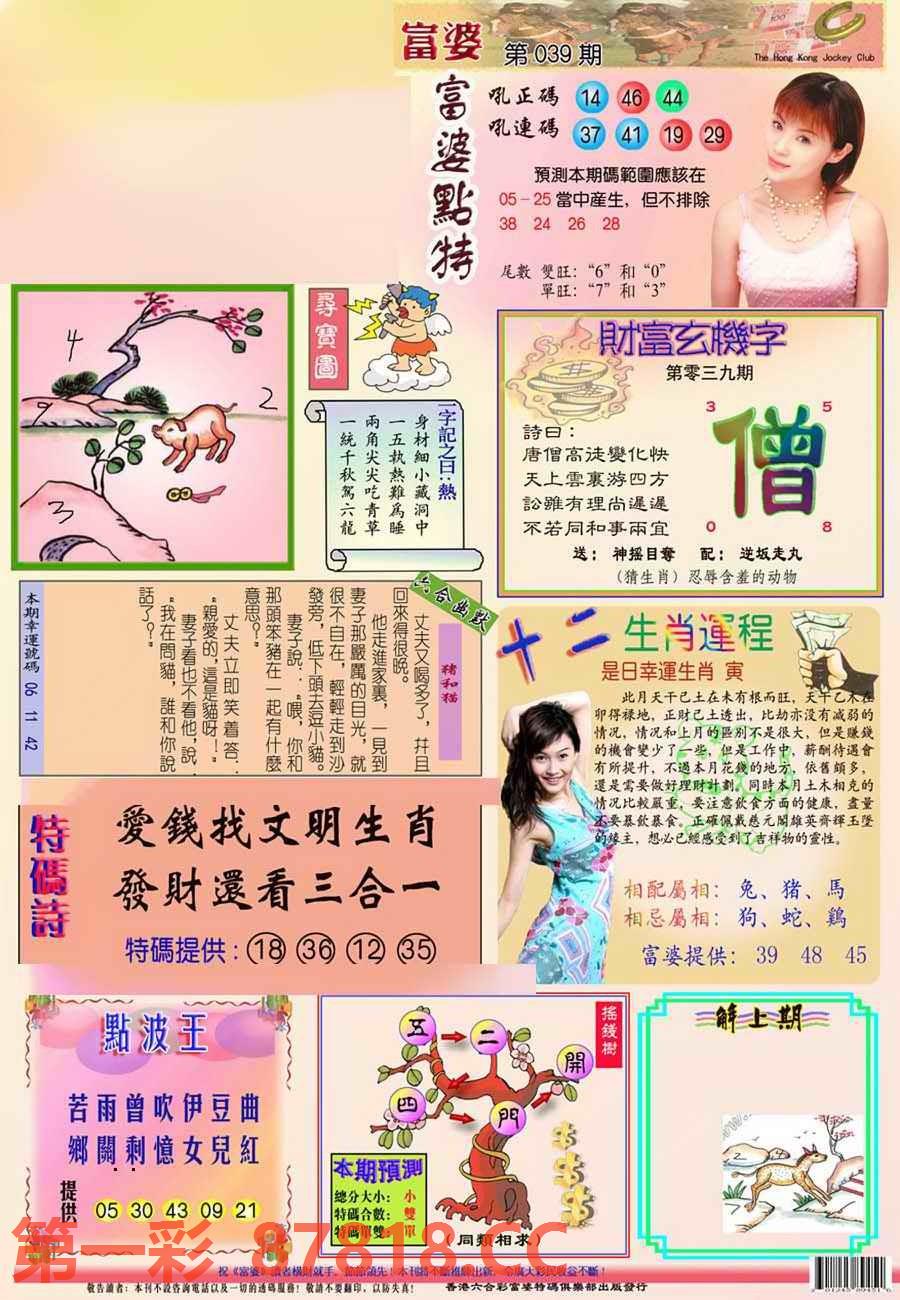 富婆 第039期
The Hong Kong Jockey Club
富婆點特
吼正碼 14 46 44
吼連碼 37 41 19 29
預測本期碼範圍應該在
05－25 當中産生，但不排除
38 24 26 28
尾數 雙旺：“6”和“0”
單旺：“7”和“3”
4
2
9
3
尋寶圖
一字記之曰：熱
身材細小藏洞中
一五執熱難爲睡
兩角尖尖吃青草
一統千秋駕六龍
財富玄機字
第零三九期
3 5
僧
0 8
詩曰：
唐僧高徒變化快
天上雲裏游四方
訟雖有理尚遲遲
不若同和事兩宜
送：神摇目奪 配：逆坂走丸
（猜生肖）忍辱含羞的动物
六合幽默
猪和猫
丈夫又喝多了，幷且
回來得很晚。
他走進家裏，一見到
妻子那嚴厲的目光，就
很不自在，輕輕走到沙
發旁，低下頭去逗小貓。
妻子說：“喂，你和
那頭笨豬在一起有什麽
意思？”
丈夫立即笑着答：
“親愛的，這是貓呀！”
妻子看也不看他，說：
“我在問貓，誰和你說
話了？”
本期幸運號碼 06 11 42
十二生肖運程
是日幸運生肖 寅
此月天干己土在未有根而旺，天干乙木在
卯得禄地，正財己土透出，比劫亦没有减弱的
情况，情况和上月的區别不是很大，但是賺錢
的機會變少了一些，但是工作中，薪酬待遇會
有所提升，不過本月花錢的地方，依舊頗多，
還是需要做好理財計劃，同時本月土木相克的
情况比較嚴重，要注意飲食方面的健康，盡量
不要暴飲暴食，正確佩戴慈元閣雄英齊輝玉墜
的緣主，想必已經感受到了吉祥物的靈性。
相配屬相：兔、猪、馬
相忌屬相：狗、蛇、鷄
富婆提供：39 48 45
特碼詩
愛錢找文明生肖
發財還看三合一
特碼提供：18 36 12 35
點波王
苦雨曾吹伊豆曲
鄉關剩憶女兒紅
提供 05 30 43 09 21
搖錢樹
五 二 開
四 門
本期預測
總分大小：小
特碼合數：雙
特碼單雙：單
（同類相求）
解上期
2
第一彩 87818.CC
祝《富婆》讀者横財就手，節節領先！本刊將不斷推陳出新，令廣大彩民收益不斷！
敬告讀者：本刊不設咨詢電話以及一切的透碼服務！敬請不要翻印，以防失真！
香港六合彩富婆特碼俱樂部出版發行